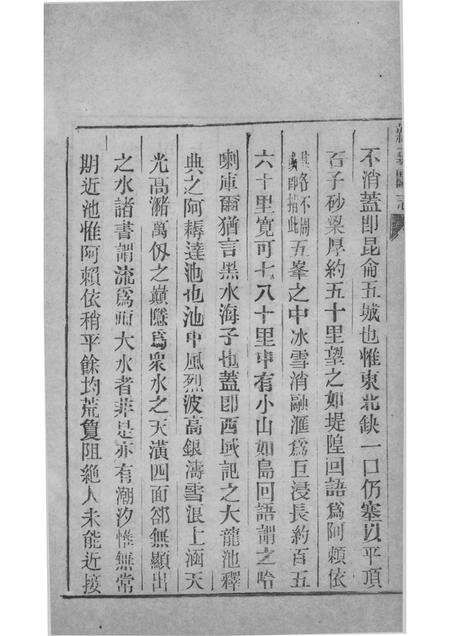 不消蓋即昆侖五城也惟東北缺一口仍塞以平頂
百子砂梁厚約五十里望之如堤隍回語爲阿賴依
五峯之中冰雪消融滙爲巨浸長約百五
六十里寬可七八十里中有小山如島回語謂之哈
喇庫爾猶言黑水海子也蓋即西域記之大龍池釋
典之阿耨達池也池中風烈波高銀濤雪浪上涵天
光高瀦萬仭之巔隱爲衆水之天潢四面卻無顯出
之水諸書謂流爲四大水者非是亦有潮汐惟無常
期近池惟阿賴依稍平餘均荒夐阻絶人未能近接